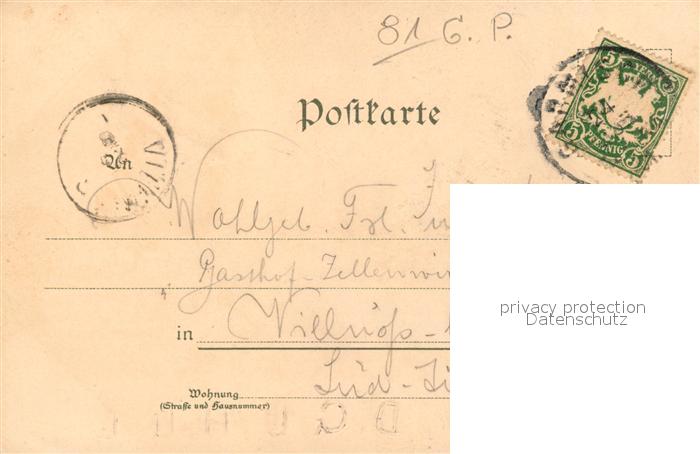 81 G. P.
BAYERN
5 5
PFENNIG
5 5
Postkarte
An
Wohlgeb. Frl.
Gasthof-Zellenwir
in Villnöß-
Süd-Ti
Wohnung
(Straße und Hausnummer)
privacy protection
Datenschutz